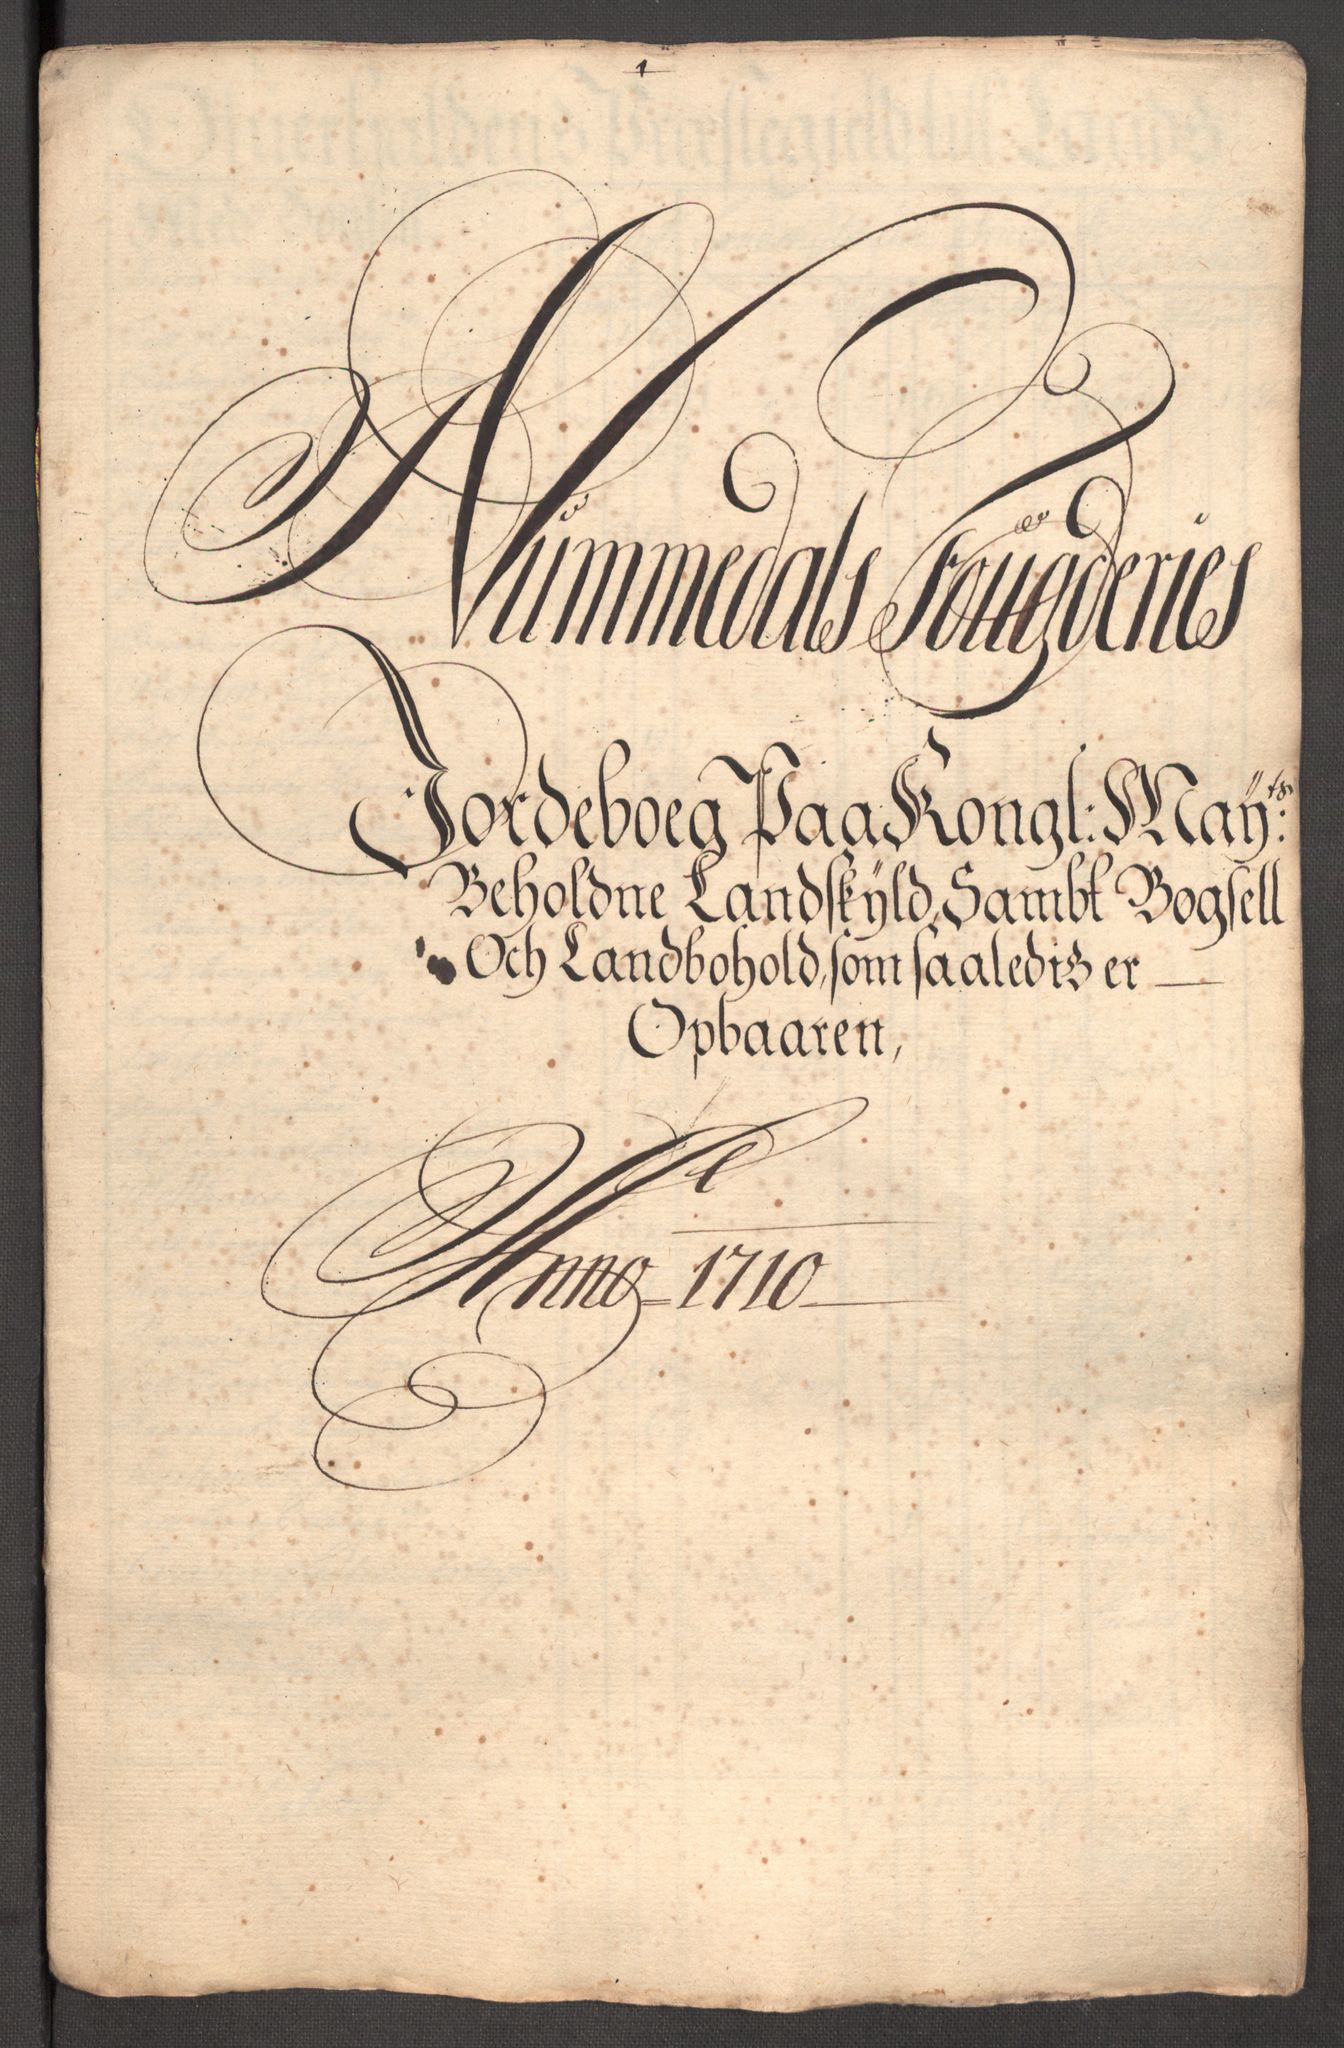 1
Nümmedals Foügderies
Jordeboeg Paa Kongl: Maÿ:ts
Beholdne Landskÿld, Sambt Bogsell
Och Landbohold, som saaledis er
Opbaaren,
Anno 1710